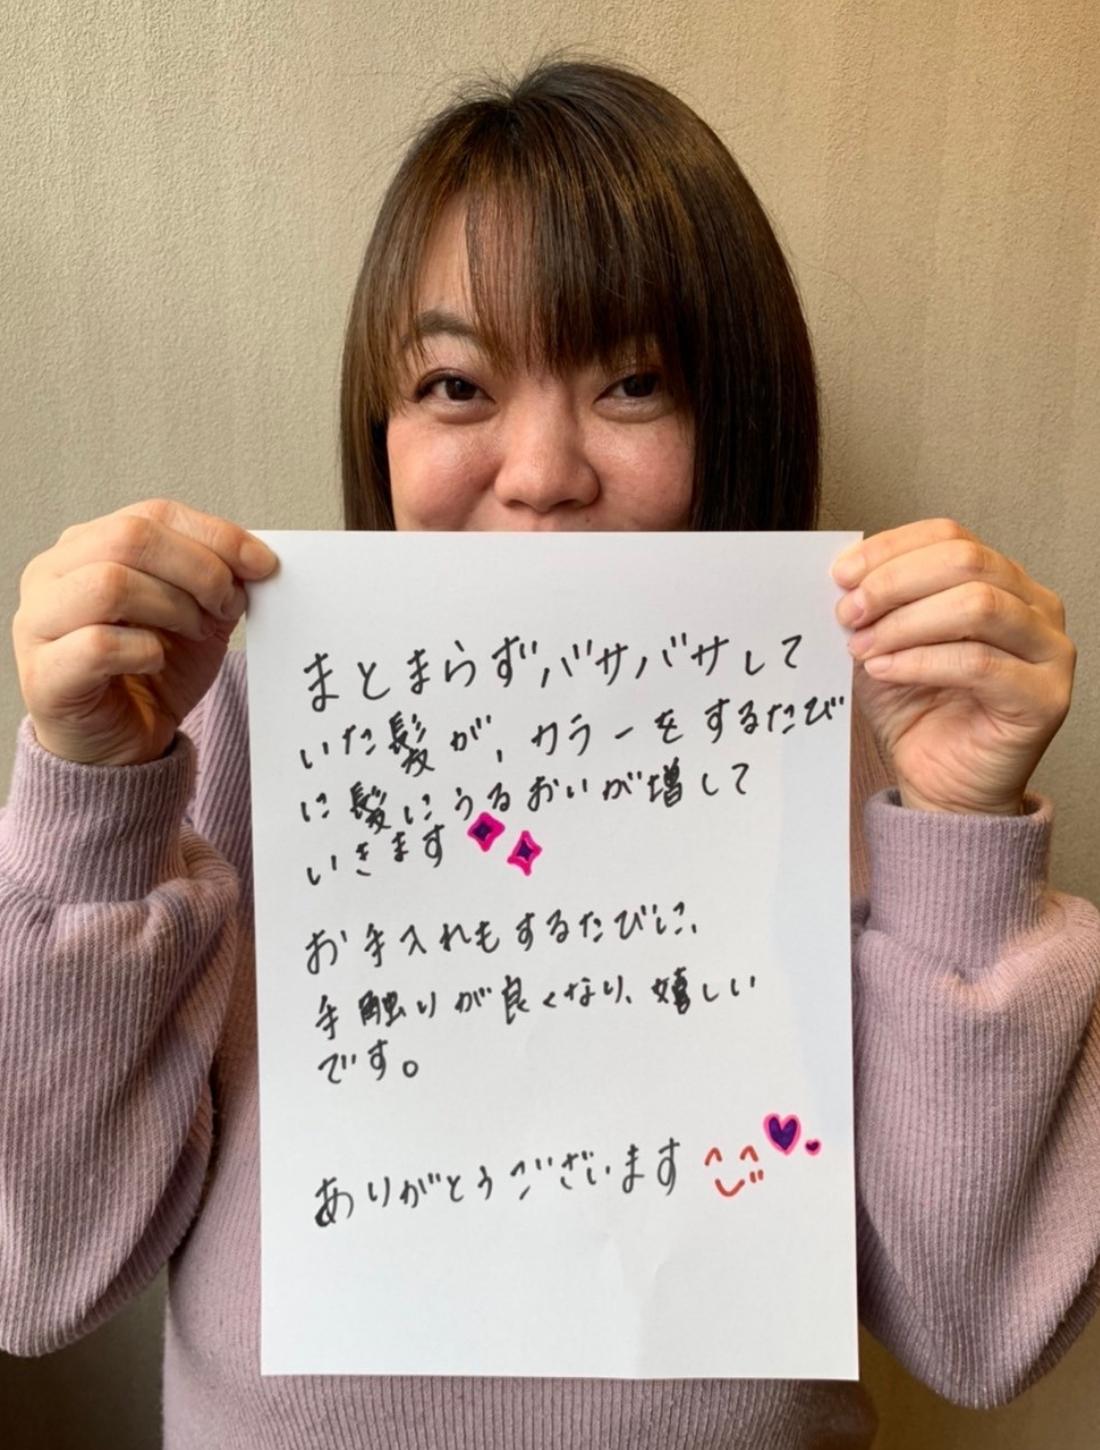 まとまらずバサバサして
いた髪が、カラーをするたび
に髪にうるおいが増して
いきます
お手入れもするたびに、
手触りが良くなり、嬉しい
です。
ありがとうございます